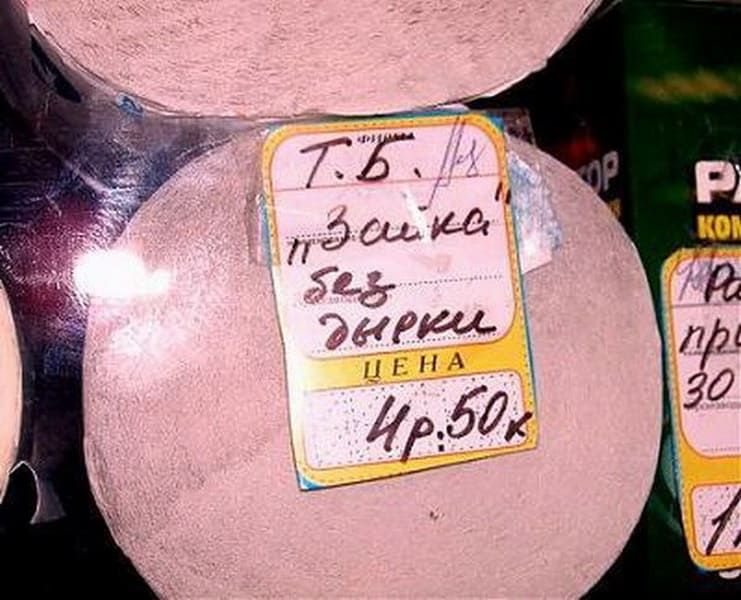 Т.Б.
"Зайка"
без
дырки
ЦЕНА
4р.50к
КОМ
Ра
при
30